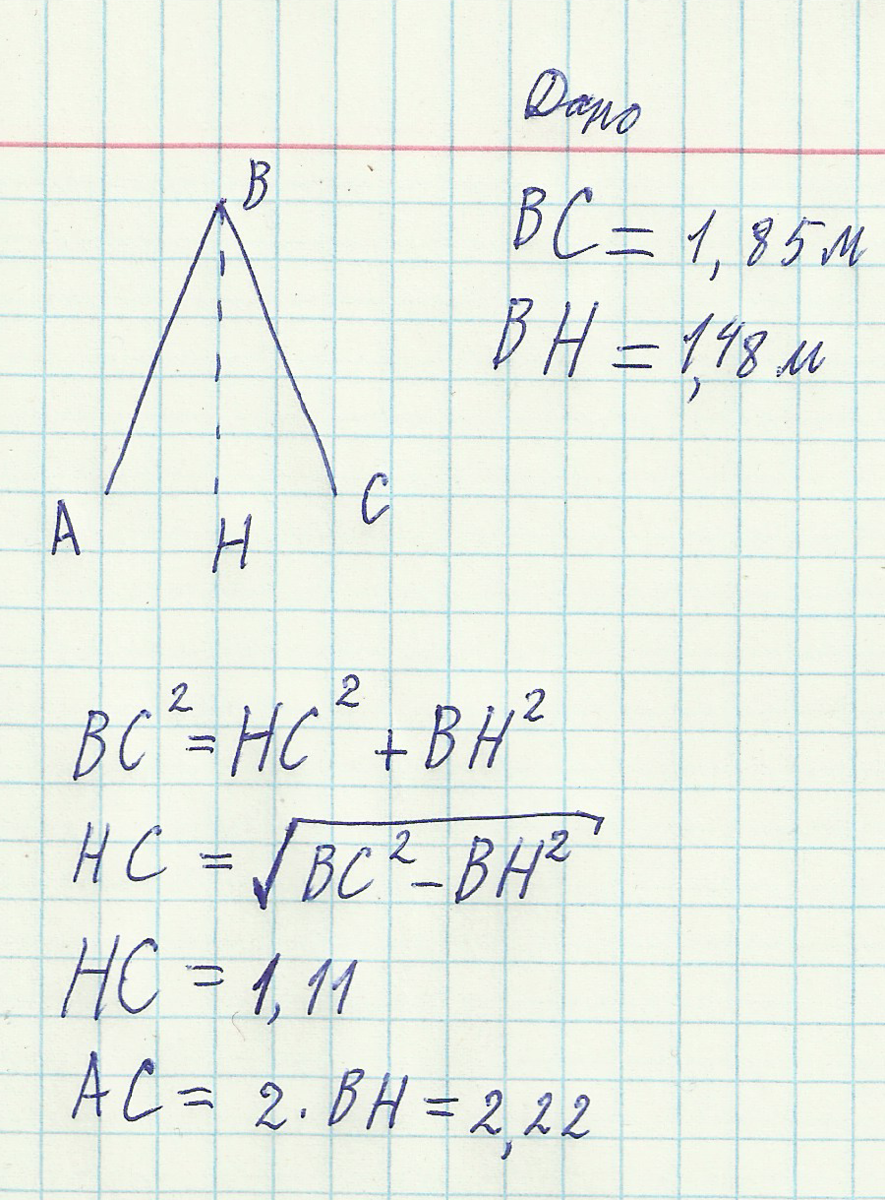 Дано
B
BC = 1,85 м
BH = 1,48 м
A
H
C
BC² = HC² + BH²
HC = √BC² - BH²
HC = 1,11
AC = 2 · BH = 2,22